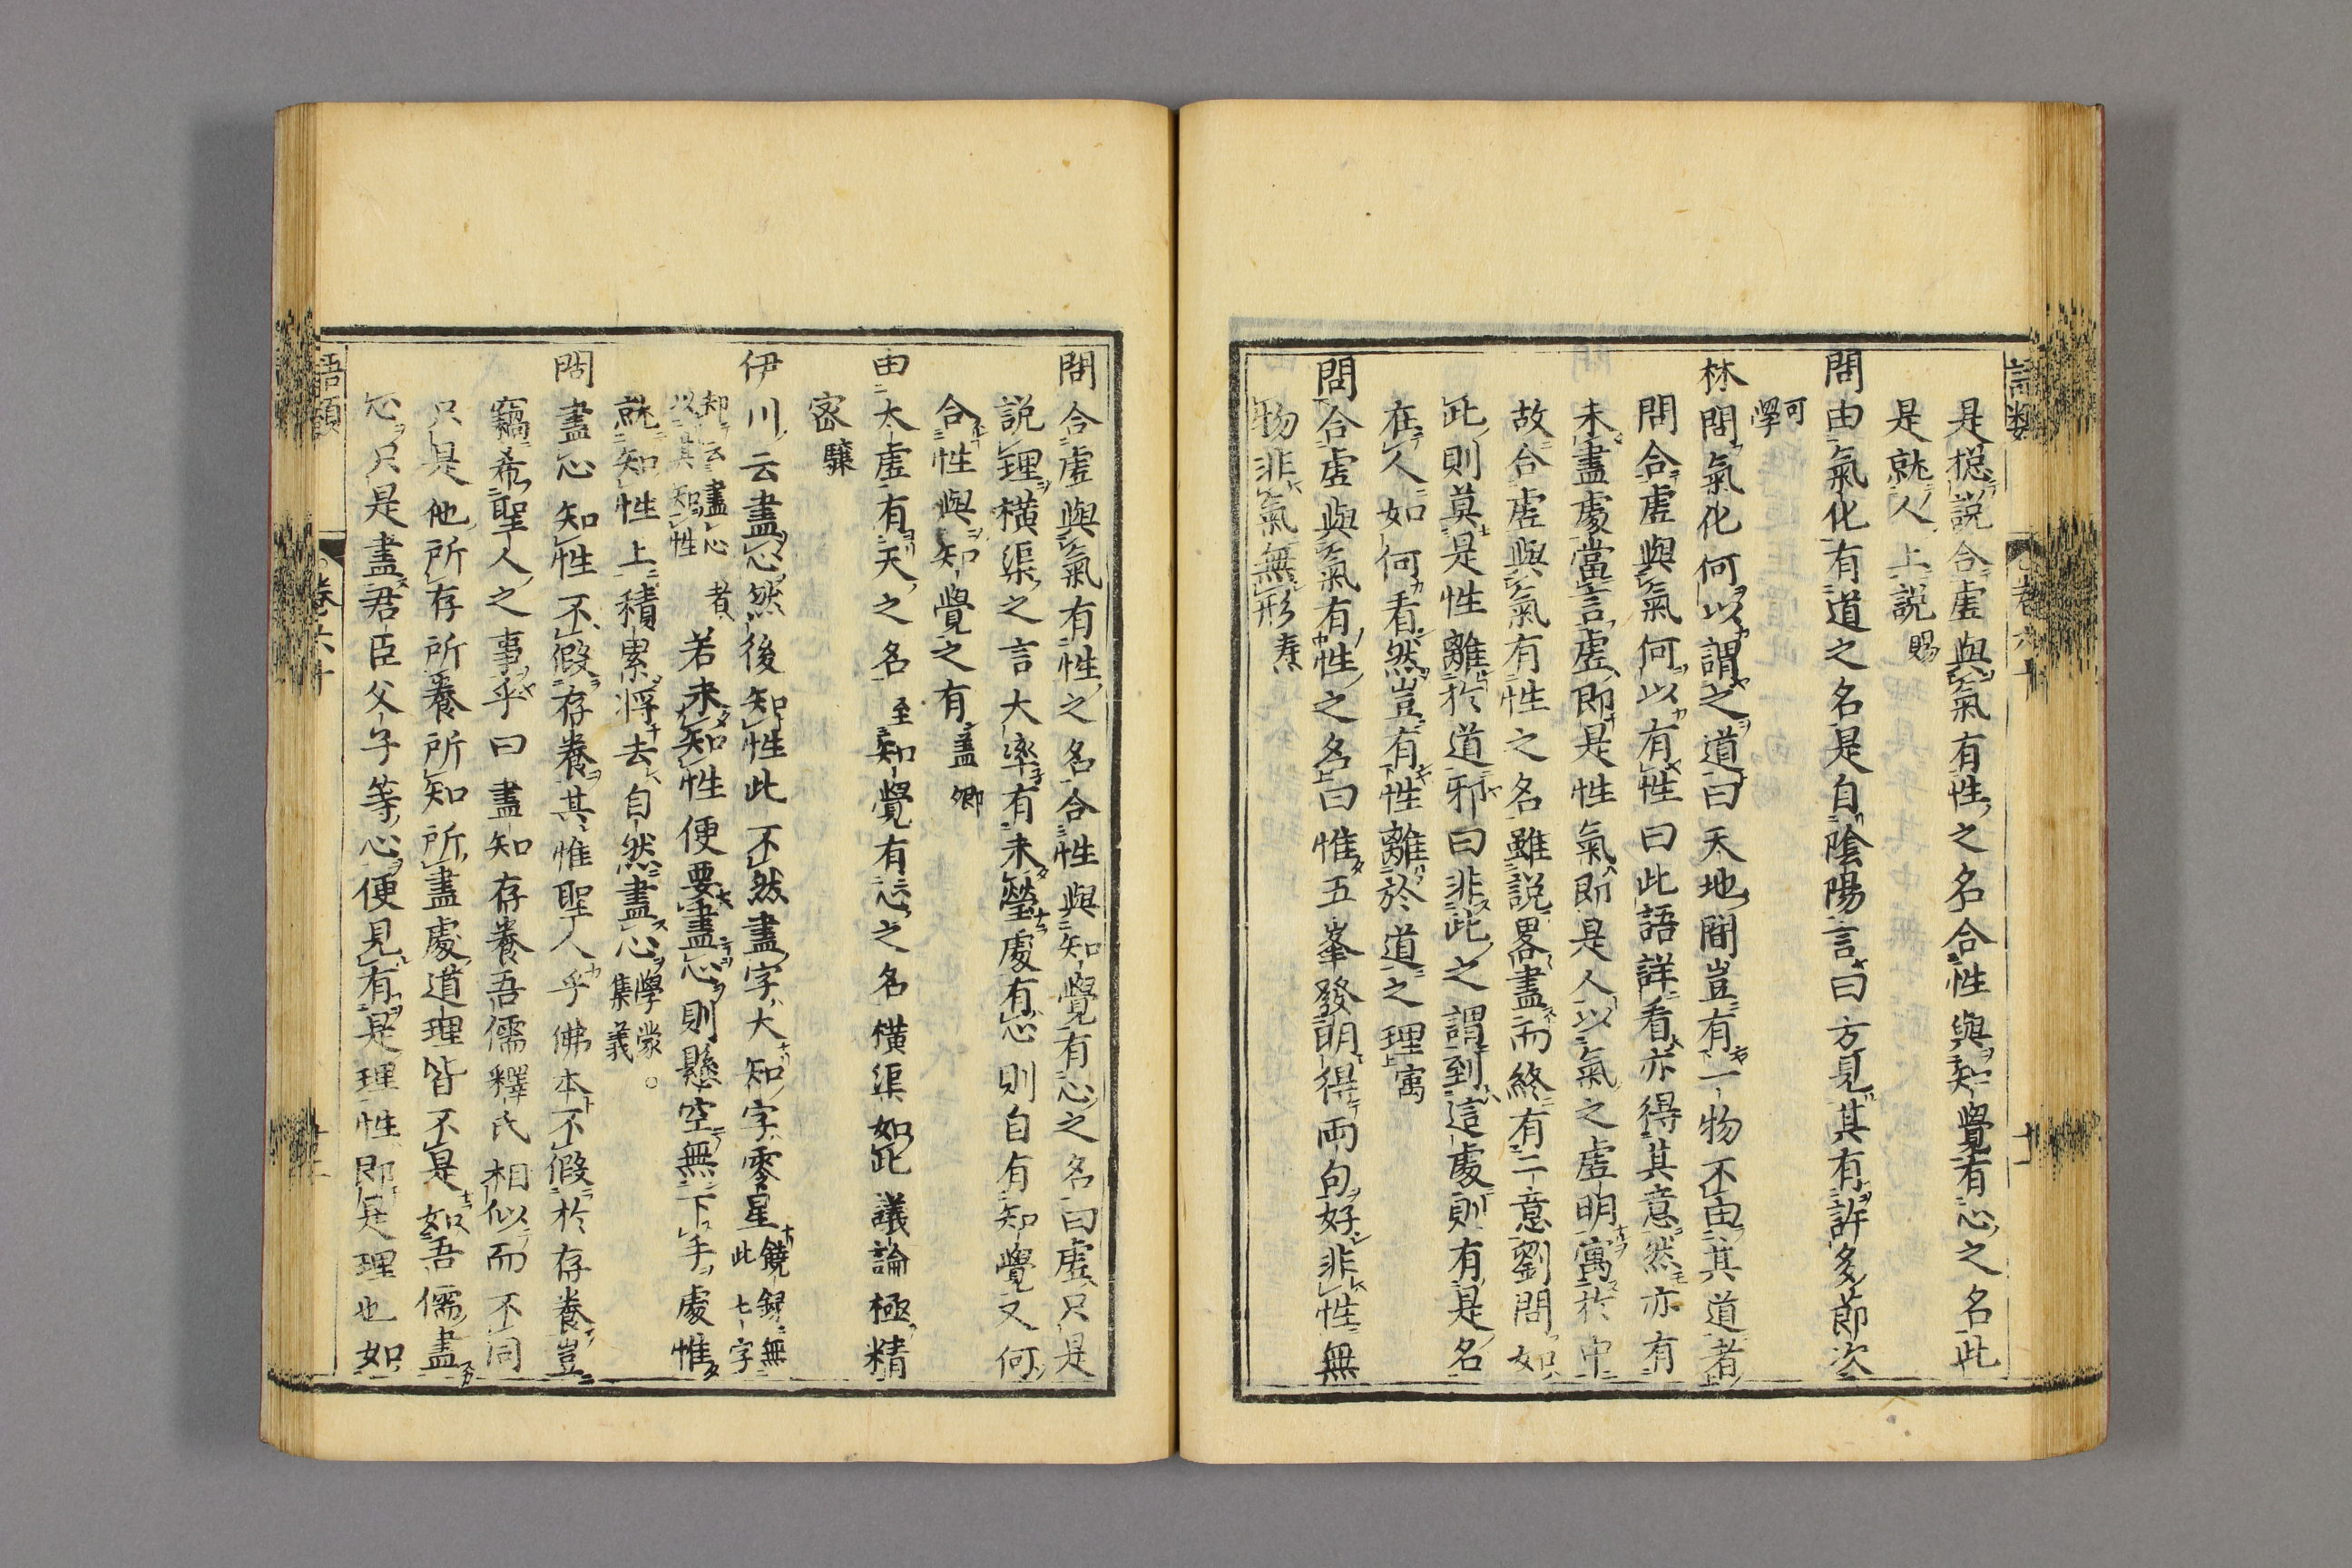 是揔説合虛與氣有性之名合性與知覺有心之名此
是就人上説賜
問由氣化有道之名是自陰陽言曰方見其有許多節次
可學
林問氣化何以謂之道曰天地閒豈有一物不由其道者
問合虛與氣何以有性曰此語詳看亦得其意然亦有
未盡處當言虛即是性氣即是人以氣之虛明寓於中
故合虛與氣有性之名雖説畧盡而終有二意劉問如
此則莫是性離於道邪曰非此之謂到這處則有是名
在人如何看然豈有性離於道之理㝢
問合虛與氣有性之名曰惟五峯發明得兩句好非性無
物非氣無形壽
問合虛與氣有性之名合性與知覺有心之名曰虛只是
説理橫渠之言大率有未瑩處有心則自有知覺又何
合性與知覺之有蓋卿
由太虛有天之名至知覺有心之名橫渠如此議論極精
密驤
伊川云盡心然後知性此不然盡字大知字零星饒録無此七字
却云盡心者以其知性若未知性便要盡心則懸空無下手處惟
就知性上積累將去自然盡心學蒙集義○
問盡心知性不假存養其惟聖人乎佛本不假於存養豈
竊希聖人之事乎曰盡知存養吾儒釋氏相似而不同
只是他所存所養所知所盡處道理皆不是如吾儒盡
心只是盡君臣父子等心便見有是理性即是理也如
語類 卷六十 十一
語類 卷六十